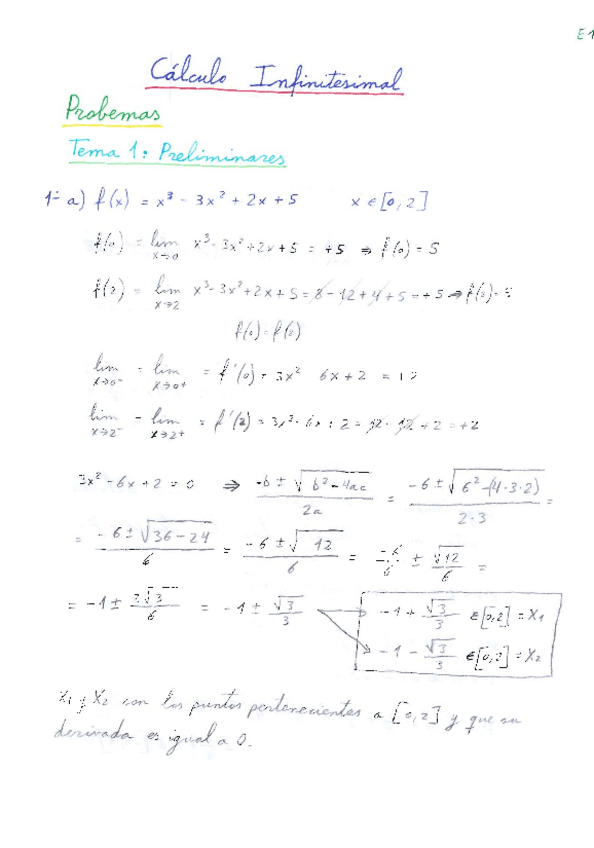 E1
Cálculo Infinitesimal
Probemas
Tema 1: Preliminares
1- a) f(x) = x³ - 3x² + 2x + 5 x ∈ [0, 2]
f(0) = lim x→0 x³ - 3x² + 2x + 5 = +5 ⇒ f(0) = 5
f(2) = lim x→2 x³ - 3x² + 2x + 5 = 8 - 12 + 4 + 5 = +5 ⇒ f(2) = 5
f(0) = f(2)
lim x→0⁻ = lim x→0⁺ = f'(0) = 3x² 6x + 2 = +2
lim x→2⁻ = lim x→2⁺ = f'(2) = 3x² - 6x + 2 = 12 - 12 + 2 = +2
3x² - 6x + 2 = 0 ⇒ -b ± √b² - 4ac / 2a = -6 ± √6² - (4·3·2) / 2·3 =
= -6 ± √36 - 24 / 6 = -6 ± √12 / 6 = -6/6 ± √12/6 =
= -1 ± 2√3/6 = -1 ± √3/3 -1 + √3/3 ∈ [0,2] = X₁
-1 - √3/3 ∈ [0,2] = X₂
X₁ y X₂ son los puntos pertenecientes a [0,2] y que su
derivada es igual a 0.